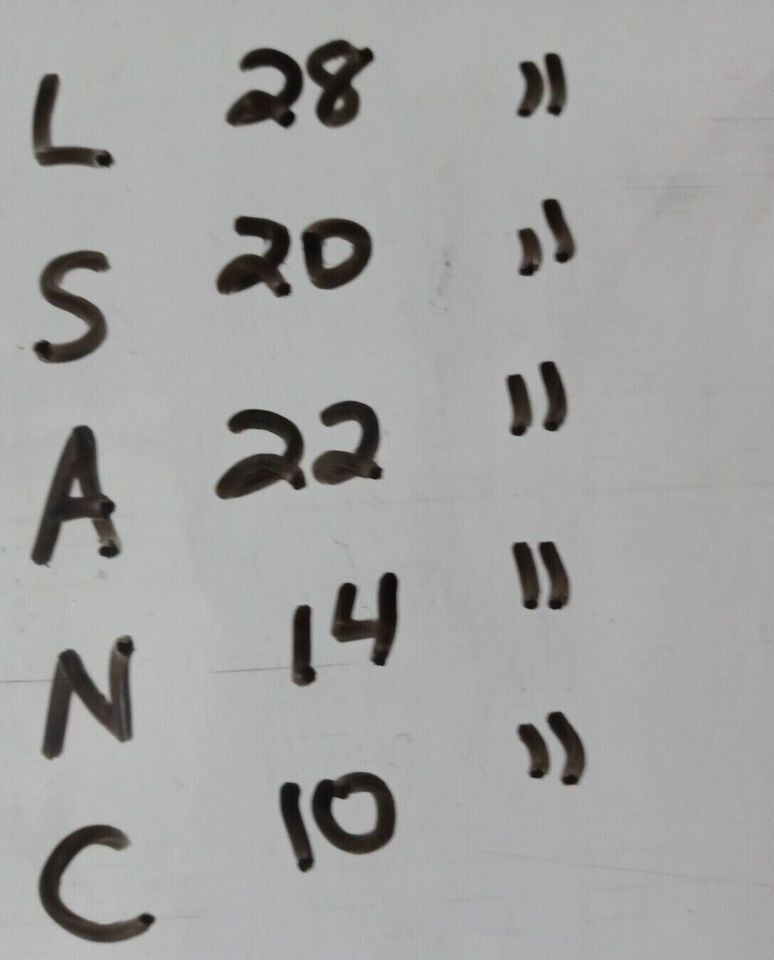 L 28 "
S 20 "
A 22 "
N 14 "
C 10 "